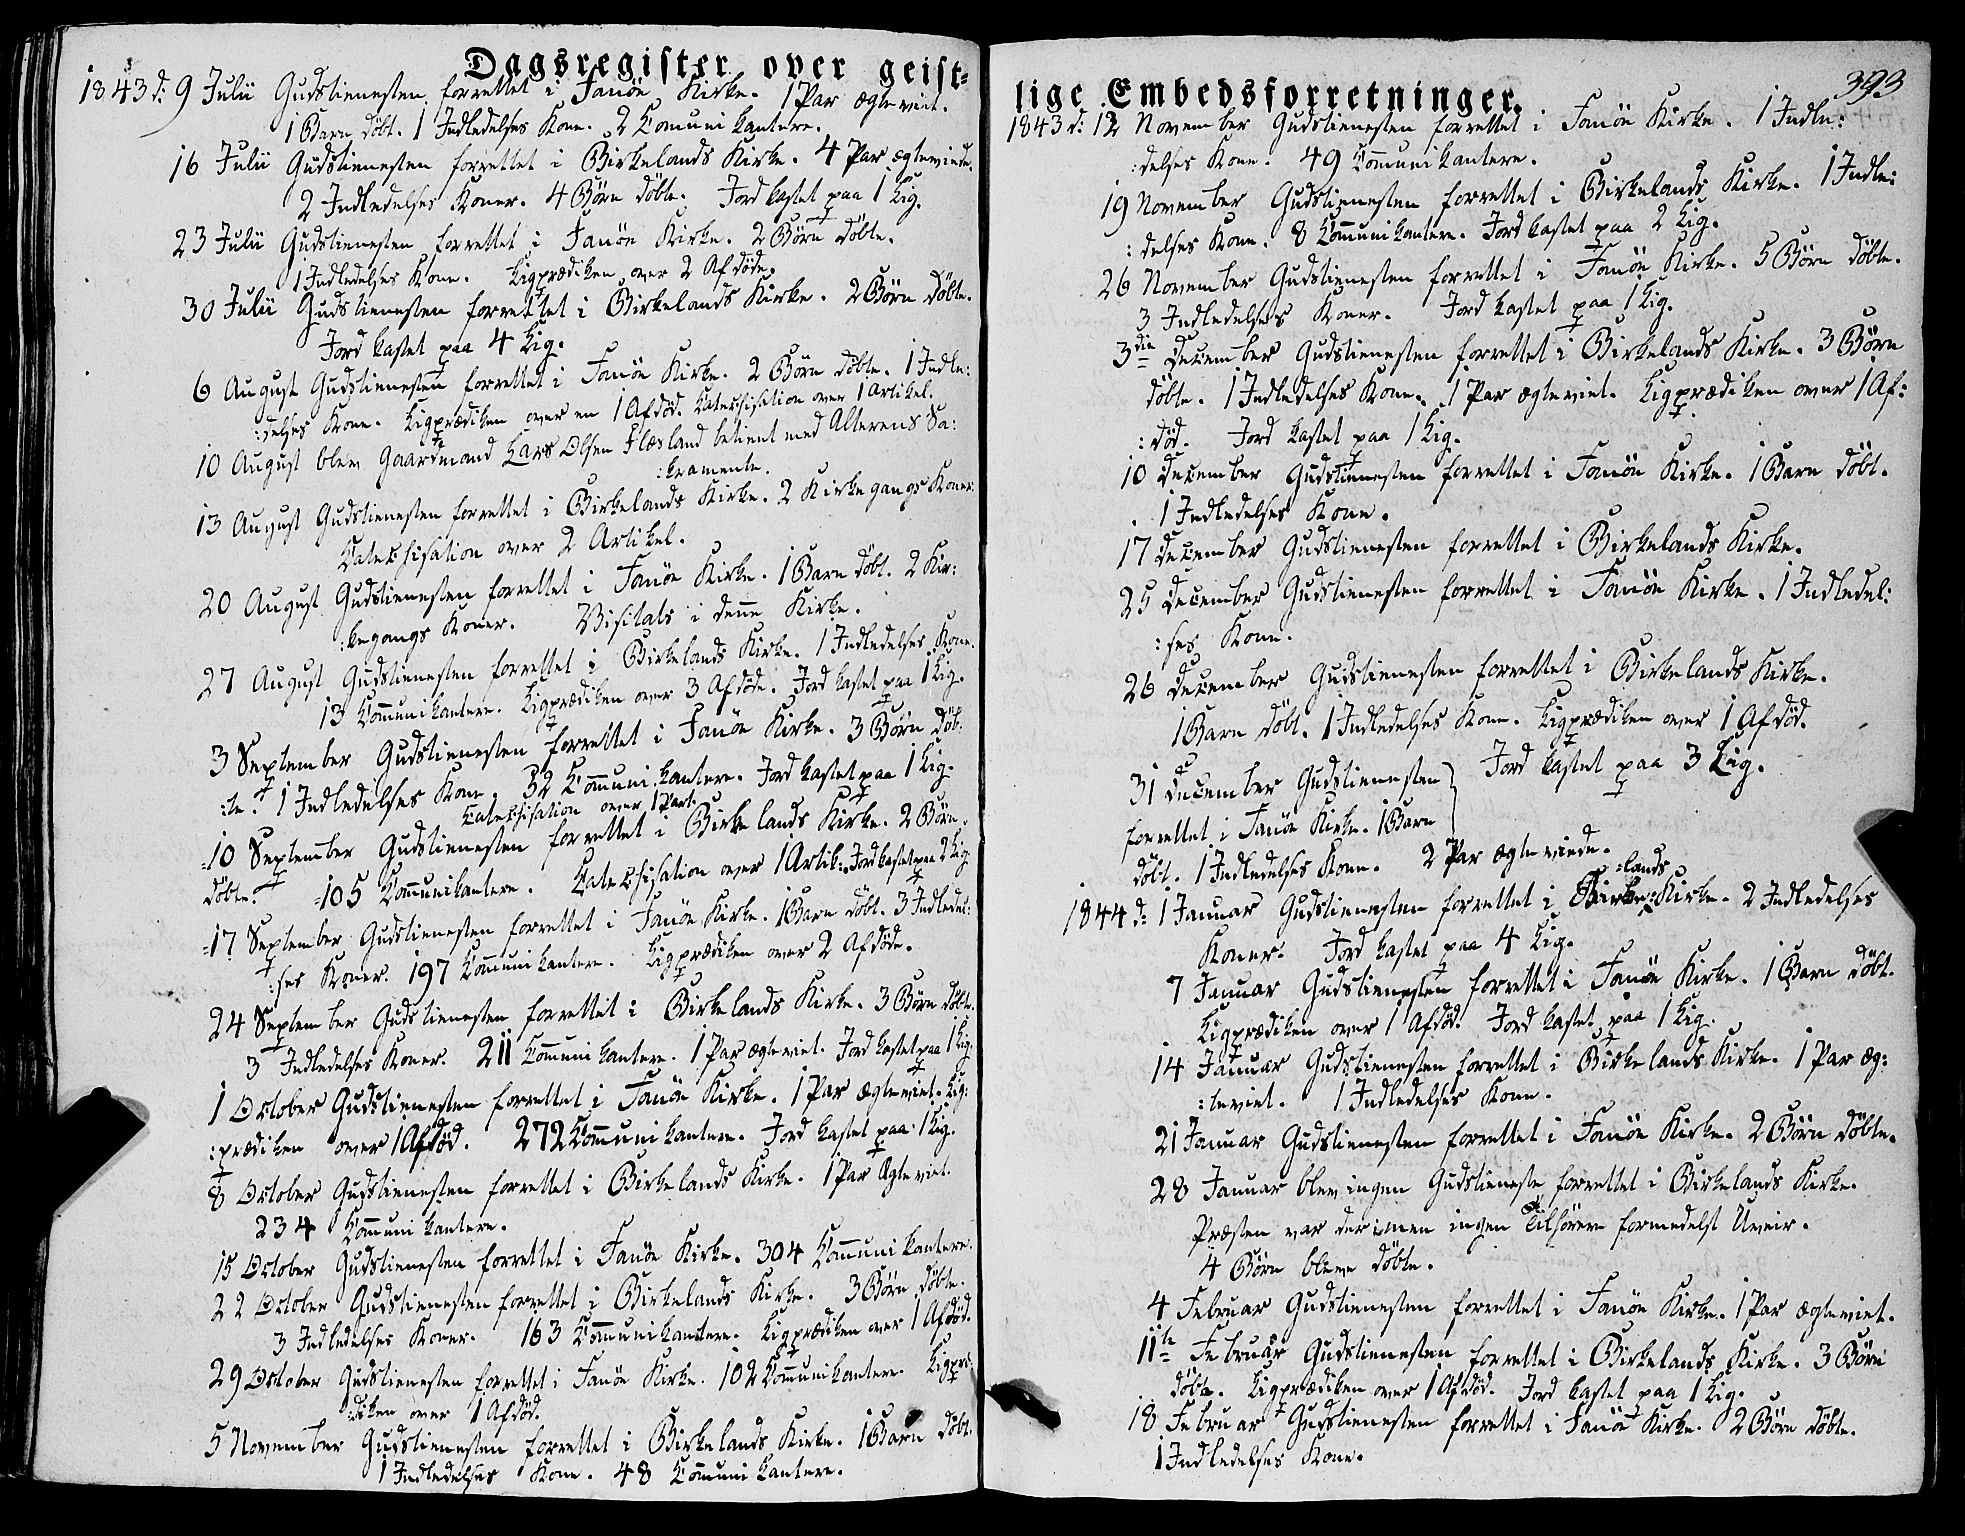 Dagsregister over geist=
1843 d: 9 Julii Gudstienesten forrettet i Fanöe Kirke. 1 Par ægteviet.
1 Barn döbt. 1 Indledelses Kone. 2 Com̅unikantere.
16 Julii Gudstienesten forrettet i Birkelands Kirke. 4 Par ægteviede.
2 Indledelses Koner. 4 Börn döbte. Jord kastet paa 1 Lig.
23 Julii Gudstienesten forrettet i Fanöe Kirke. 2 Börn döbte.
1 Indledelses Kone. Ligprædiken over 2 Afdöde.
30 Julii Gudstienesten forrettet i Birkelands Kirke. 2 Börn döbte.
Jord kastet paa 4 Lig.
6 August Gudstienesten forrettet i Fanöe Kirke. 2 Börn döbte. 1 Indle:
:delses Kone. Ligprædiken over en 1 Afdöd. Catechisation over 1 Artikel.
10 August blev Gaardmand Lars Olsen Flæsland betient med Alterens Sa:
:kramente.
13 August Gudstienesten forrettet i Birkelands Kirke. 2 Kirkegangs Koner.
Catechisation over 2 Artikel.
20 August Gudstienesten forrettet i Fanöe Kirke. 1 Barn döbt. 2 Kir:
:kegangs Koner. Visitats i den̅e Kirke.
27 August Gudstienesten forrettet i Birkelands Kirke. 1 Indledelses Kone.
13 Com̅unikantere. Ligprædiken over 3 Afdöde. Jord kastet paa 1 Lig.
3 September Gudstienesten forrettet i Fanöe Kirke. 3 Börn döb:
:te. 1 Indledelses Kone. 52 Com̅unikantere. Jord kastet paa 1 Lig.
Catechisation over 1 Part.
10 September Gudstienesten forrettet i Birkelands Kirke. 2 Börn
döbte. 105 Com̅unikantere. Catechisation over 1 Artik: Jord kastet paa 2 Lig.
17 September Gudstienesten forrettet i Fanöe Kirke. 1 Barn döbt. 3 Indledel:
:ses Koner. 197 Com̅unikantere. Ligprædiken over 2 Afdöde.
24 September Gudstienesten forrettet i Birkelands Kirke. 3 Börn döbte.
3 Indledelses Koner. 211 Com̅unikantere. 1 Par ægteviet. Jord kastet paa 1 Lig.
1 October Gudstienesten forrettet i Fanöe Kirke. 1 Par ægteviet. Lig:
:prædiken over 1 Afdöd. 272 Com̅unikantere. Jord kastet paa 1 Lig.
8 October Gudstienesten forrettet i Birkelands Kirke. 1 Par ægteviet.
234 Com̅unikantere.
15 October Gudstienesten forrettet i Fanöe Kirke. 304 Com̅unikantere.
22 October Gudstienesten forrettet i Birkelands Kirke. 3 Börn döbte.
3 Indledelses Koner. 163 Com̅unikantere. Ligprædiken over 1 Afdöd.
29 October Gudstienesten forrettet i Fanöe Kirke. 102 Com̅unikantere. Ligpræ:
:diken over 1 Afdöd.
5 November Gudstienesten forrettet i Birkelands Kirke. 1 Barn döbt.
1 Indledelses Kone. 48 Com̅unikantere.
lige Embedsforretninger.
393
1843 d: 12 November Gudstienesten forrettet i Fanöe Kirke. 1 Indle:
:delses Kone. 49 Com̅unikantere.
19 November Gudstienesten forrettet i Birkelands Kirke. 1 Indle:
:delses Kone. 8 Com̅unikantere. Jord kastet paa 2 Lig.
26 November Gudstienesten forrettet i Fanöe Kirke. 5 Börn döbte.
3 Indledelses Koner. Jord kastet paa 1 Lig.
3die December Gudstienesten forrettet i Birkelands Kirke. 3 Börn
döbte. 1 Indledelses Kone. 1 Par ægteviet. Ligprædiken over 1 Af:
:död. Jord kastet paa 1 Lig.
10 December Gudstienesten forrettet i Fanöe Kirke. 1 Barn döbt.
1 Indledelses Kone.
17 December Gudstienesten forrettet i Birkelands Kirke.
25 December Gudstienesten forrettet i Fanöe Kirke. 1 Indledel:
:ses Kone.
26 December Gudstienesten forrettet i Birkelands Kirke.
1 Barn döbt. 1 Indledelses Kone. Ligprædiken over 1 Afdöd.
Jord kastet paa 3 Lig.
31 December Gudstienesten
forrettet i Fanöe Kirke. 1 Barn
döbt. 1 Indledelses Kone. 2 Par ægteviede.
:lands
1844 d: 1 Januar Gudstienesten forrettet i Birke: Kirke. 2 Indledelses
Koner. Jord kastet paa 4 Lig.
7 Januar Gudstienesten forrettet i Fanöe Kirke. 1 Barn döbt.
Ligprædiken over 1 Afdöd. Jord kastet paa 1 Lig.
14 Januar Gudstienesten forrettet i Birkelands Kirke. 1 Par æg:
:teviet. 1 Indledelses Kone.
21 Januar Gudstienesten forrettet i Fanöe Kirke. 2 Börn döbte.
28 Januar blev ingen Gudstieneste forrettet i Birkelands Kirke.
Præsten var der men ingen Tilhörere formedelst Uveir.
4 Börn bleve döbte.
4 Februar Gudstienesten forrettet i Fanöe Kirke. 1 Par ægteviet.
11te Februar Gudstienesten forrettet i Birkelands Kirke. 3 Börn
döbte. Ligprædiken over 1 Afdöd. Jord kastet paa 1 Lig.
18 Februar Gudstienesten forrettet i Fanöe Kirke. 2 Börn döbte.
1 Indledelses Kone.